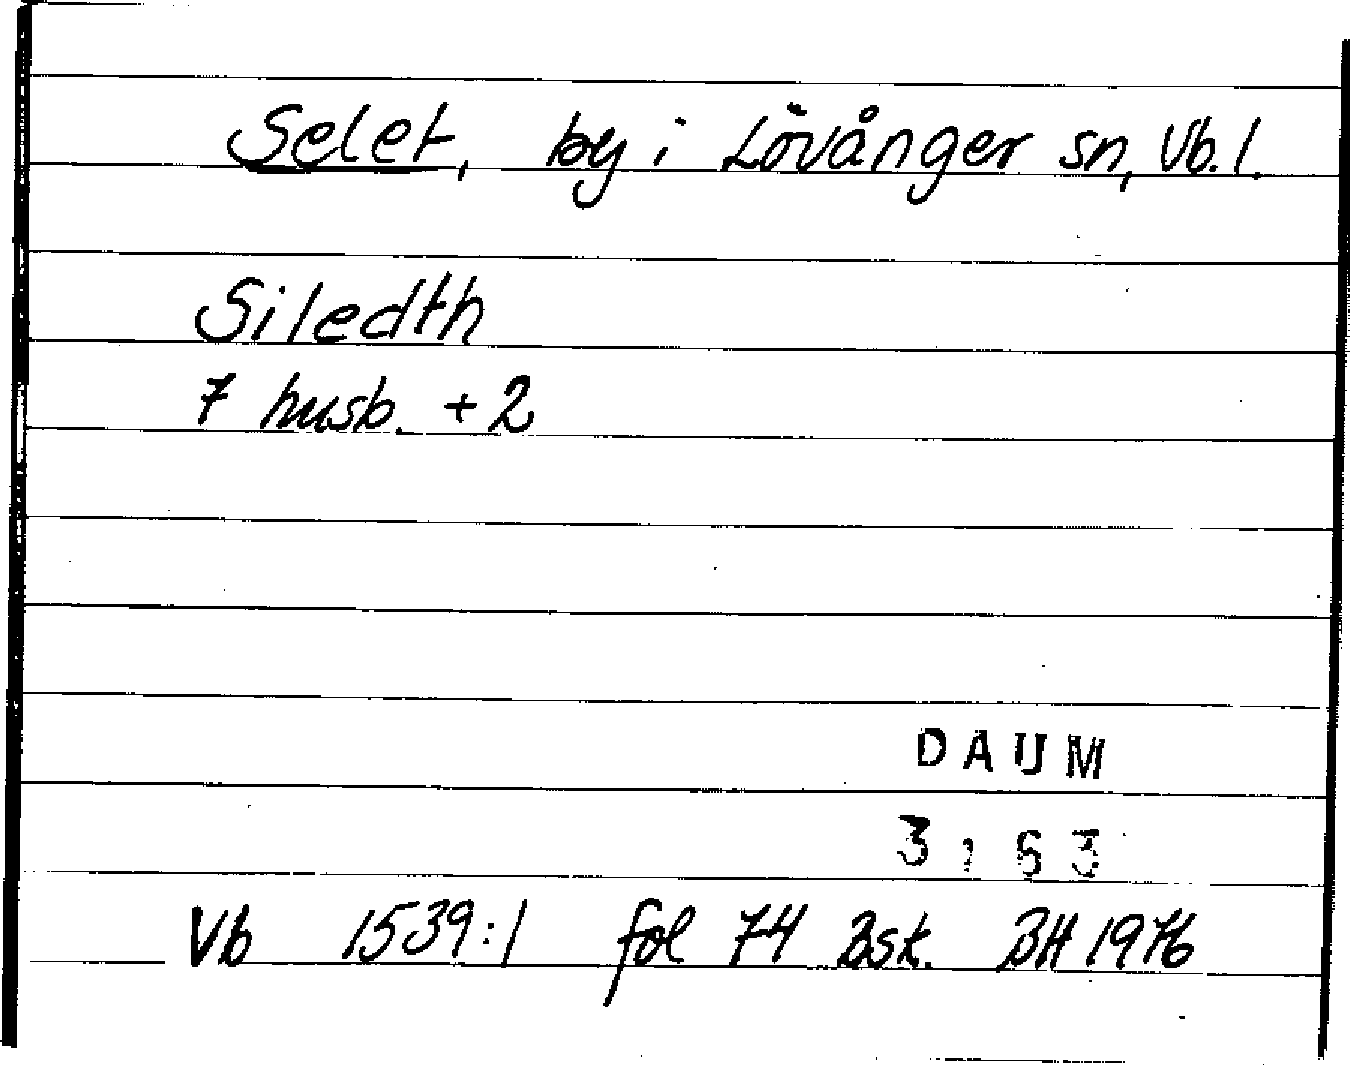 Selet, by i Lövånger sn, Vb.l.
Siledth
7 husb. + 2
DAUM
3:63
Vb 1539:1 fol 74 Bst. BH 1976